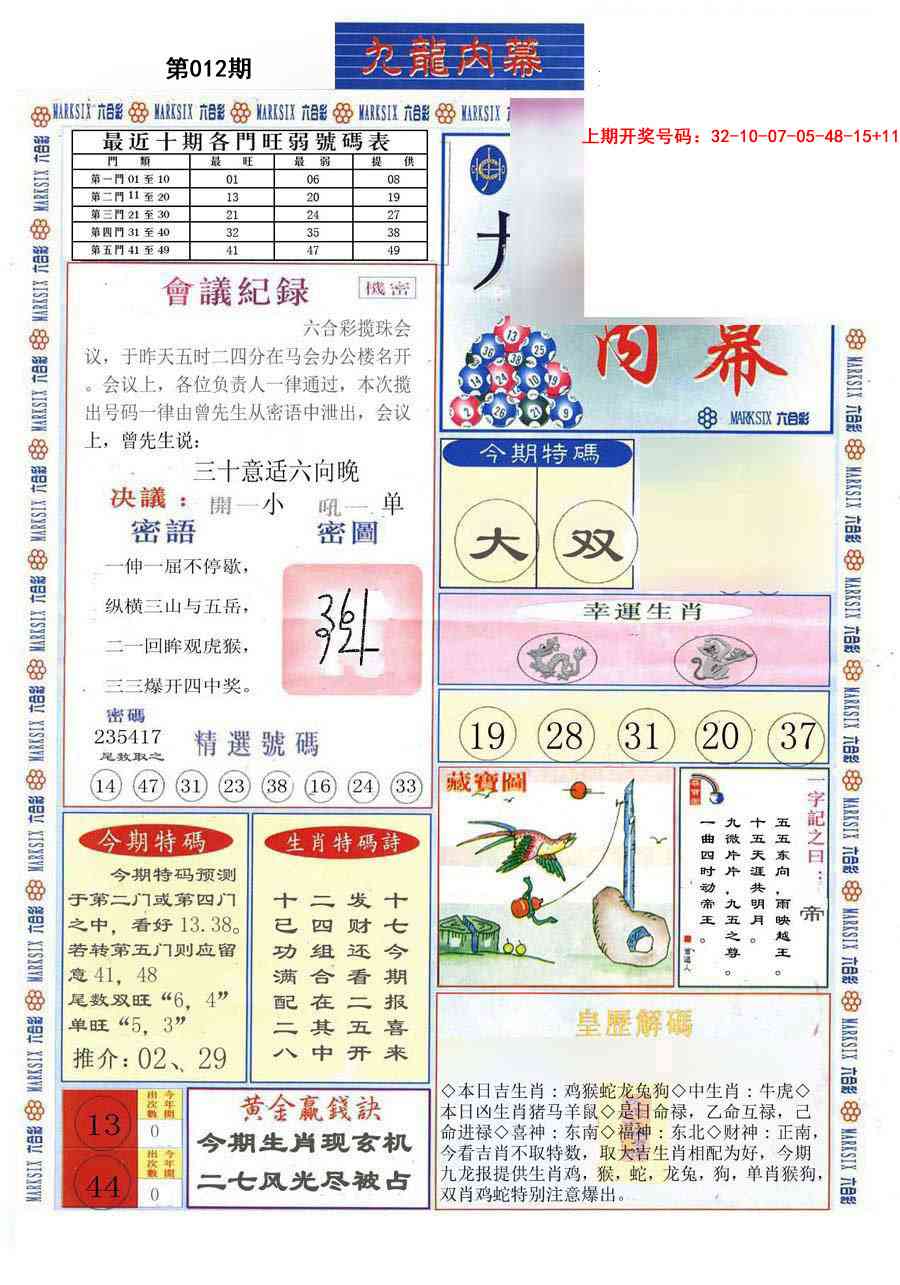 第012期
九龍内幕
MARKSIX 六合彩 MARKSIX 六合彩 MARKSIX 六合彩 MARKSIX 六合彩 MARKSIX
上期开奖号码：32-10-07-05-48-15+11
最近十期各門旺弱號碼表
門類 最旺 最弱 提供
第一門01至10 01 06 08
第二門11至20 13 20 19
第三門21至30 21 24 27
第四門31至40 32 35 38
第五門41至49 41 47 49
會議紀録
機密
六合彩揽珠会
议，于昨天五时二四分在马会办公楼名开
。会议上，各位负责人一律通过，本次揽
出号码一律由曾先生从密语中泄出，会议
上，曾先生说：
三十意适六向晚
决議：開一小 吼一单
密語 密圖
一伸一屈不停歇，
纵横三山与五岳，
二一回眸观虎猴，
三三爆开四中奖。
密碼
235417
尾数取之
精選號碼
14 47 31 23 38 16 24 33
内幕
13
36 38 25
14 24 10 19
2 26 21 9
MARKSIX 六合彩
今期特碼
大 双
幸運生肖
19 28 31 20 37
藏寶圖
一字記之曰：帝
五五东向，雨映越王。
十五天涯共明月。
九微片片，九五之尊。
一曲四时动帝王。
今期特碼
今期特码预测
于第二门或第四门
之中，看好13.38。
若转第五门则应留
意41，48
尾数双旺“6，4”
单旺“5，3”
推介：02、29
生肖特碼詩
十七今期报喜来
发财还看二五开
二四组合在其中
十已功满配二八
13 今年開出次數 0
44 今年開出次數 0
黄金赢錢訣
今期生肖现玄机
二七风光尽被占
皇歷解碼
◇本日吉生肖：鸡猴蛇龙兔狗◇中生肖：牛虎◇
本日凶生肖猪马羊鼠◇是日命禄，乙命互禄，己
命进禄◇喜神：东南◇福神：东北◇财神：正南，
今看吉肖不取特数，取大吉生肖相配为好，今期
九龙报提供生肖鸡，猴，蛇，龙兔，狗，单肖猴狗，
双肖鸡蛇特别注意爆出。